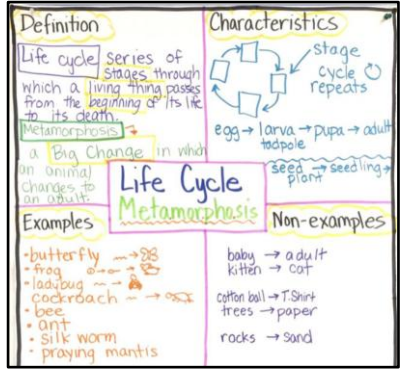 Definition
Life cycle series of
stages through
which a living thing passes
from the beginning of its life
to its death.
Metamorphosis →
a Big Change in which
an animal
changes to
an adult.
Characteristics
stage
cycle
repeats
egg → larva → pupa → adult
tadpole
seed → seedling →
plant
Life Cycle
Metamorphosis
Examples
• butterfly
• frog
• ladybug
cockroach
• bee
• ant
• silk worm
• praying mantis
Non-examples
baby → adult
kitten → cat
cotton ball → T.Shirt
trees → paper
rocks → sand